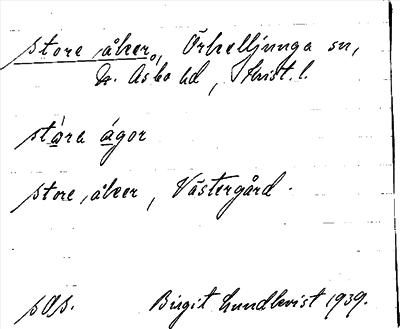 store åker, Örkelljunga sn,
N. Åsbo hd, Krist. l.
stára ágor
store åker, Västergård.
s. 98.
Birgit Lundkvist 1939.